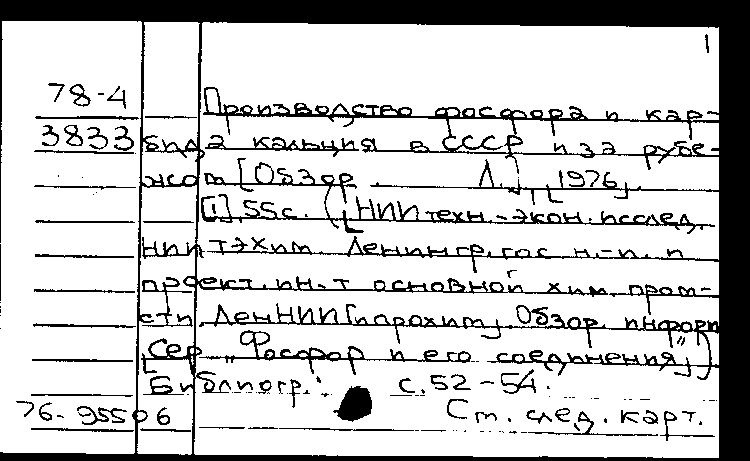 1
78-4 Производство фосфора и кар-
3833 бида кальция в СССР и за рубе-
жом [Обзор. Л.], [1976].
[1], 55с. ([НИИ техн.-экон. исслед.
НИИТЭХИМ. Ленингр. гос. н.-и. и
проект. ин-т основной хим. пром-
сти. ЛенНИИГипрохим]. Обзор. информ.
[Сер. „Фосфор и его соединения"])
Библиогр.: с. 52-54.
76-95506 Ст. след. карт.